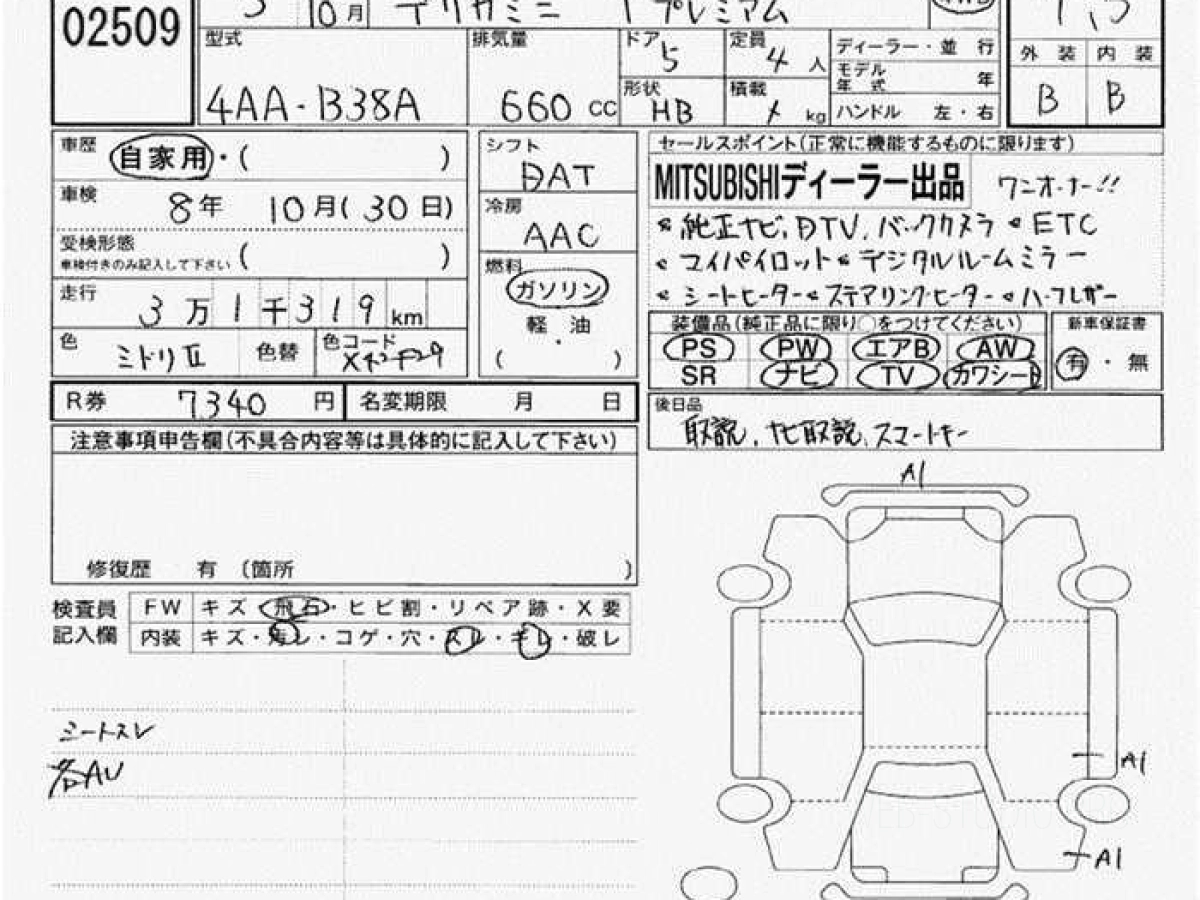 02509
5 10月 デリカミニ T プレミアム 4WD
型式 排気量 ドア 5 定員 4 人 ディーラー・並 行
モデル年式 年
4AA-B38A 660 CC 形状 HB 積載 kg ハンドル 左・右
外装 内装
B B
車歴 自家用・( )
車検 8年 10月(30日)
受検形態 ( )
車検付きのみ記入して下さい
走行 3万1千319km
色 ミドリⅡ 色替 色コード
シフト DAT
冷房 AAC
燃料 ガソリン
軽・油
( )
セールスポイント(正常に機能するものに限ります)
MITSUBISHIディーラー出品 ワンオーナー!!
純正ナビ, DTV, バックカメラ ETC
マイパイロット デジタルルームミラー
シートヒーター ステアリングヒーター ハーフレザー
装備品(純正品に限り○をつけてください)
PS PW エアB AW
SR ナビ TV カワシート
新車保証書
有・無
R券 7,340 円 名変期限 月 日
後日品
取説, ナビ取説, スマートキー
注意事項申告欄(不具合内容等は具体的に記入して下さい)
修復歴 有 〔箇所 〕
検査員記入欄
FW キズ・飛石・ヒビ割・リペア跡・X要
内装 キズ・汚レ・コゲ・穴・スレ・キレ・破レ
シートスレ
各AU
A1
A1
A1